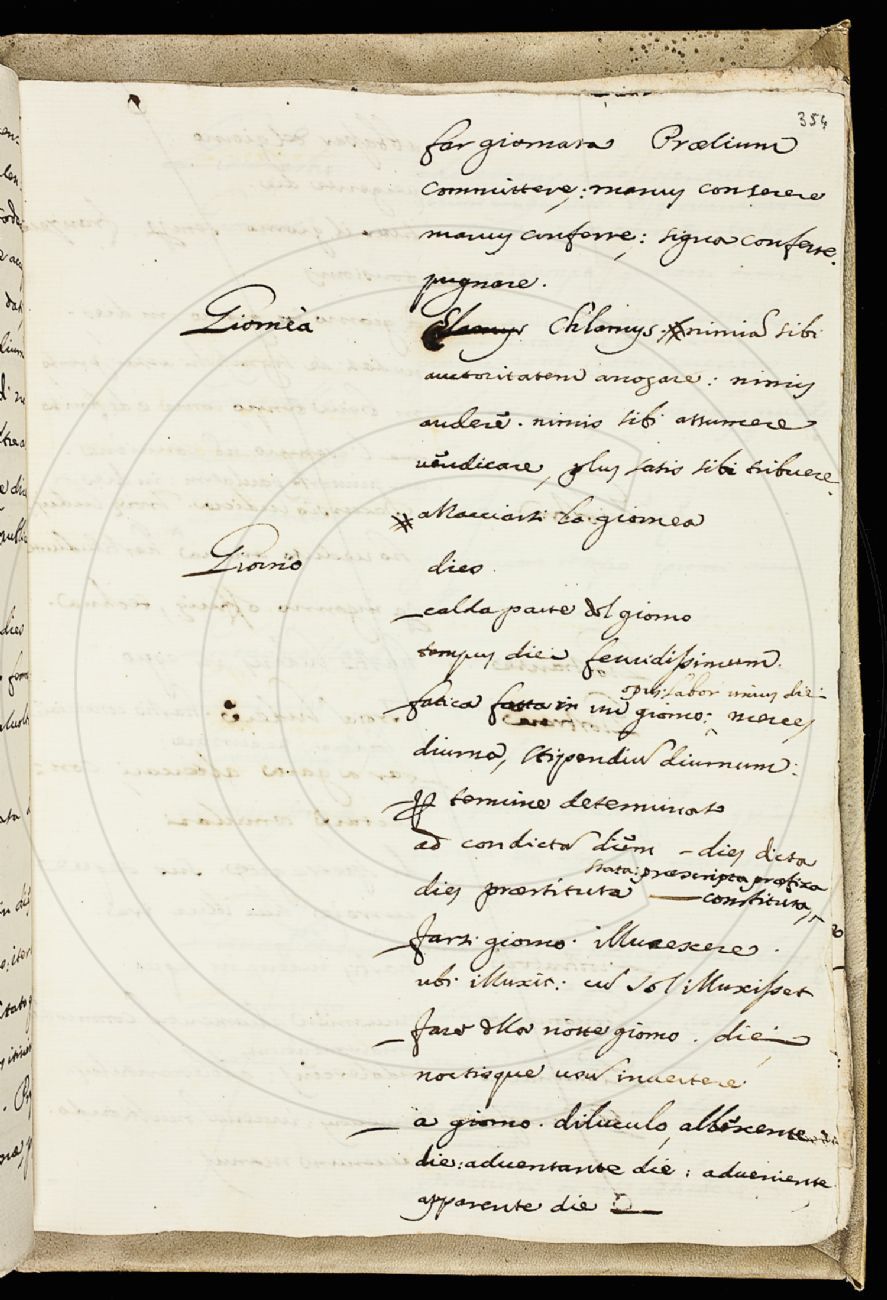 354
far giornata Prælium
committere; manus conserere
manus conferre: signa conferre.
pugnare.
Giornèa Chlamys Chlamys. # nimiã sibi
auctoritatem arrogare: nimis
auderẽ. nimis sibi assumere
vẽndicare, plus satis sibi tribuere.
# allacciarsi la giornea
Giorno dies.
calda parte dl giorno
tempus diei fervidissimum.
opus: labor unius diei
fatica fatta in un giorno; merces
diurna, stipendiũ diurnum:
termine determinato
ad condictã diẽm – dies dicta
stata: præscripta præfixa
dies præstituta — constituta,
farsi giorno. illucescere.
ubi illuxit: cũ sol illuxisset
fare dlla notte giorno. diei
noctisque usũ invertere
a giorno. diluculo, albescente
die: adventante die: adveniente
apparente die